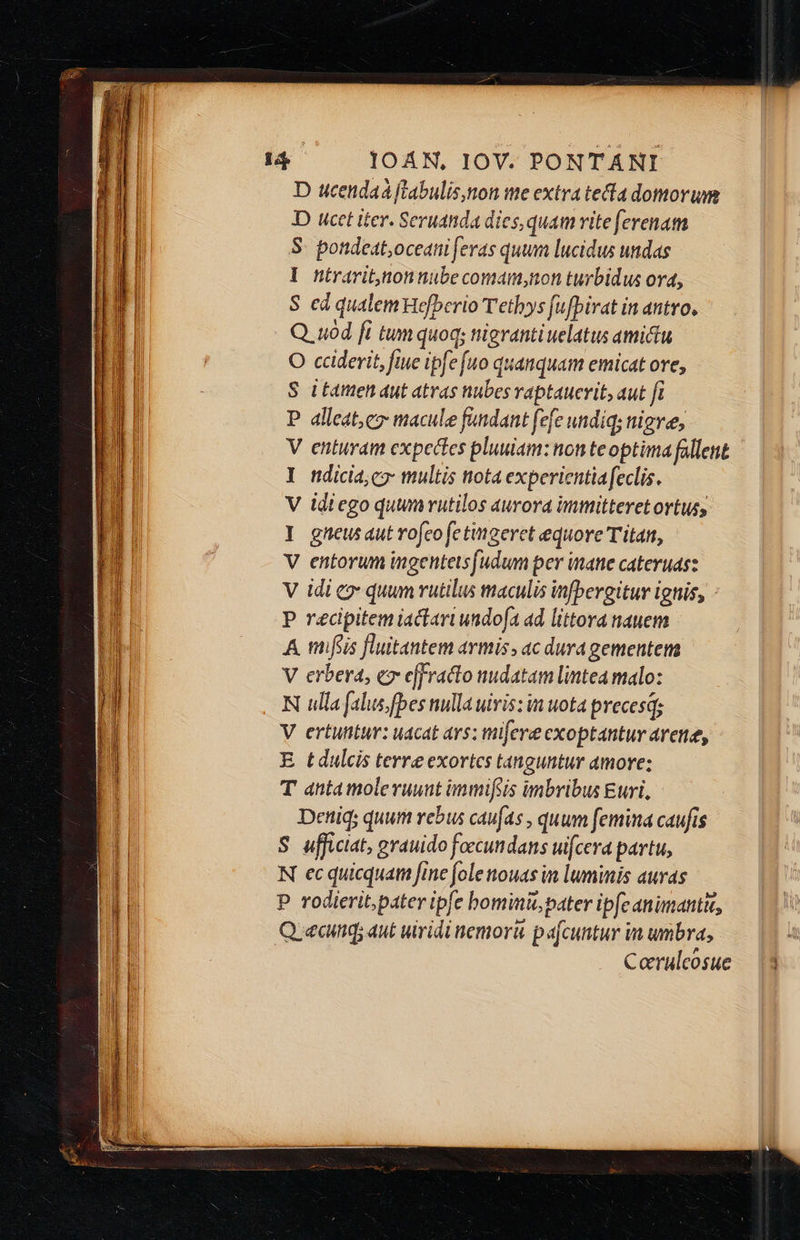 14 IOAN. IOV. PONTANI
D ucendaà ſtabulis,non me extra tecta domorum
D ucet iter. Seruanda dies,quam rite ſerenam
S pondeat,oceani ſeras quum lucidus undas
I ntrarit,non nube comam,non turbidus ora,
S ed qualem Heſperio Tethys ſuſpirat in antro.
Q uòd ſi tum quoq; nigranti uelatus amictu
O cciderit, ſiue ipſe ſuo quanquam emicat ore,
S i tamen aut atras nubes raptauerit, aut ſi
P alleat,& maculæ fundant ſeſe undiq; nigræ,
V enturam expectes pluuiam: non te optima fallent
I ndicia,& multis nota experientia ſeclis.
V idi ego quum rutilos aurora immitteret ortus,
I gneus aut roſeo ſe tingeret æquore Titan,
V entorum ingenteis ſudum per inane cateruas:
V idi & quum rutilus maculis inſpergitur ignis,
P ræcipitem iactari undoſa ad littora nauem
A miſſis fluitantem armis, ac dura gementem
V erbera, & effracto nudatam lintea malo:
N ulla ſalus,ſpes nulla uiris: in uota precesq;
V ertuntur: uacat ars: miſeræ exoptantur arenæ,
E t dulcis terræ exortes tanguntur amore:
T anta mole ruunt immiſſis imbribus Euri.
Deniq; quum rebus cauſas, quum ſemina cauſis
S ufficiat, grauido fœcundans uiſcera partu,
N ec quicquam ſine ſole nouas in luminis auras
P rodierit,pater ipſe hominũ,pater ipſe animantũ,
Q uæcunq; aut uiridi nemorũ paſcuntur in umbra,
Cœruleósue